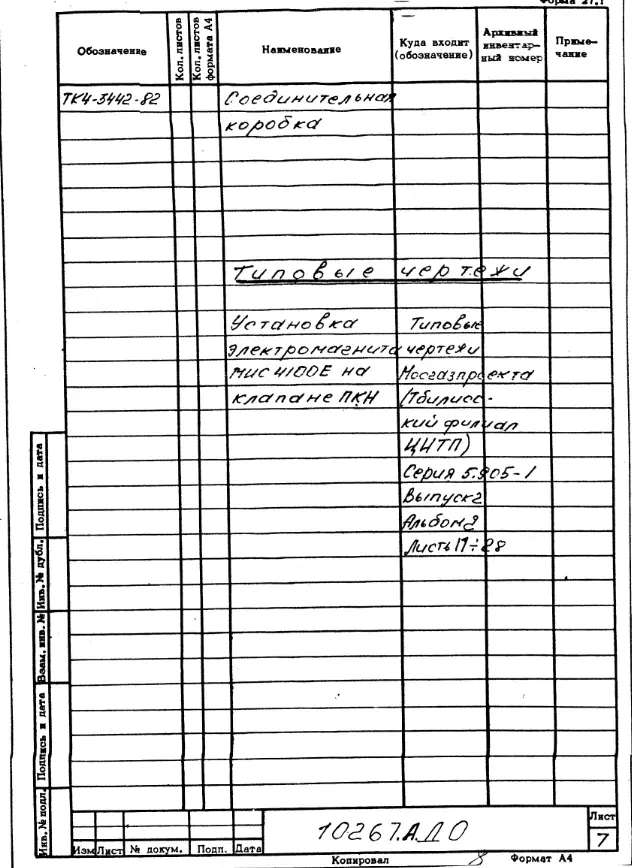 Форма 27.1
Обозначение
Кол. листов
Кол. листов
формата А4
Наименование
Куда входит
(обозначение)
Архивный
инвентар-
ный номер
Приме-
чание
ТК4-3442-82
Соединительная
коробка
Типовые чертежи
Установка Типовые
электромагнита чертежи
МИС 4100Е на Мосгазпроекта
клапане ПКН (Тбилисс-
кий филиал
ЦИТП)
Серия 5.905-1
Выпуск 2
Альбом 2
Листы 17÷28
Инв.№ подл.
Подпись и дата
Взам. инв. №
Инв.№ дубл.
Подпись и дата
Изм
Лист
№ докум.
Подп.
Дата
10267.АДО
Лист
7
Копировал
Формат А4